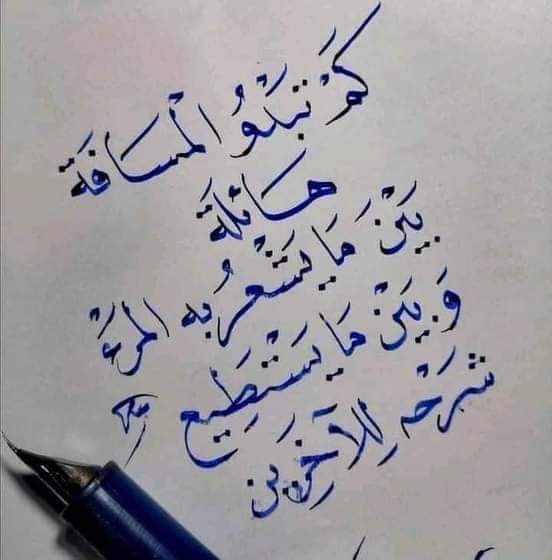 كَمْ تَبْدُو الْمَسَافَة
هَائِلَة
بَيْنَ مَا يَشْعُرُ بِهِ المَرْء
وَبَيْنَ مَا يَسْتَطِيع
شَرْحَه لِلآخَرِين